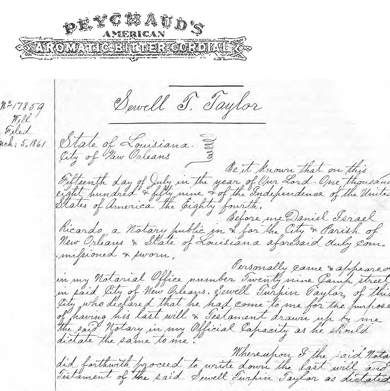 PEYCHAUD'S
AMERICAN
AROMATIC BITTER CORDIAL
No. 17859
Will
Filed
March 5. 1861
Sewell T. Taylor
State of Louisiana
City of New Orleans
Be it Known that on this
Fifteenth day of July in the year of Our Lord One thousand
eight hundred & fifty nine & of the Independence of the United
States of America the Eighty fourth.
Before me Daniel Israel
Ricardo, a Notary public in & for the City & Parish of
New Orleans & State of Louisiana aforesaid duly com-
missioned & sworn,
Personally came & appeared
in my Notarial Office number Twenty nine Camp street
in said City of New Orleans. Sewell Turpin Taylor, of this
City who declared that he had come to me for the purpose
of having his last will & Testament drawn up by me
the said Notary in my Official Capacity as he should
dictate the same to me.
Whereupon I the said Notary
did forthwith proceed to write down the last will and
Testament of the said Sewell Turpin Taylor as dictated